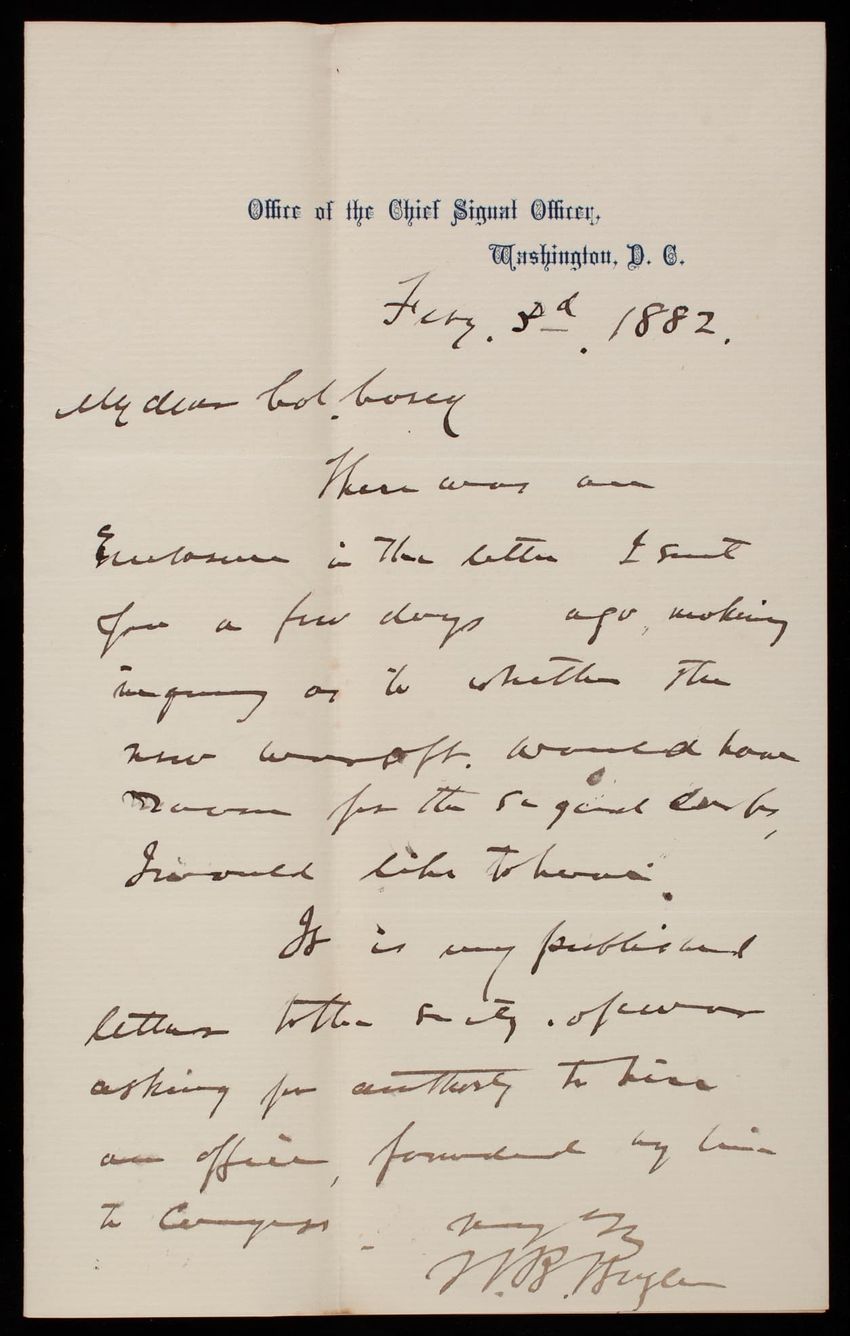 Office of the Chief Signal Officer,
Washington, D. C.
Feby. 3d. 1882.
My dear Col. Casey
There was an
Enclosure in the letter I sent
you a few days ago, making
inquiry as to whether the
new war off. would have
room for the Signal Corps,
I would like to have.
It is my published
letter to the Secty. of war
asking for authority to hire
an office, forwarded by him
to Congress. Very
W. B.